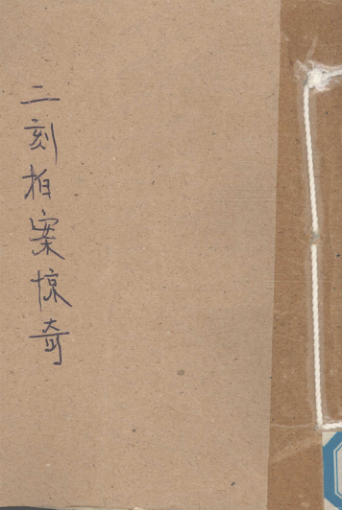 二刻拍案惊奇